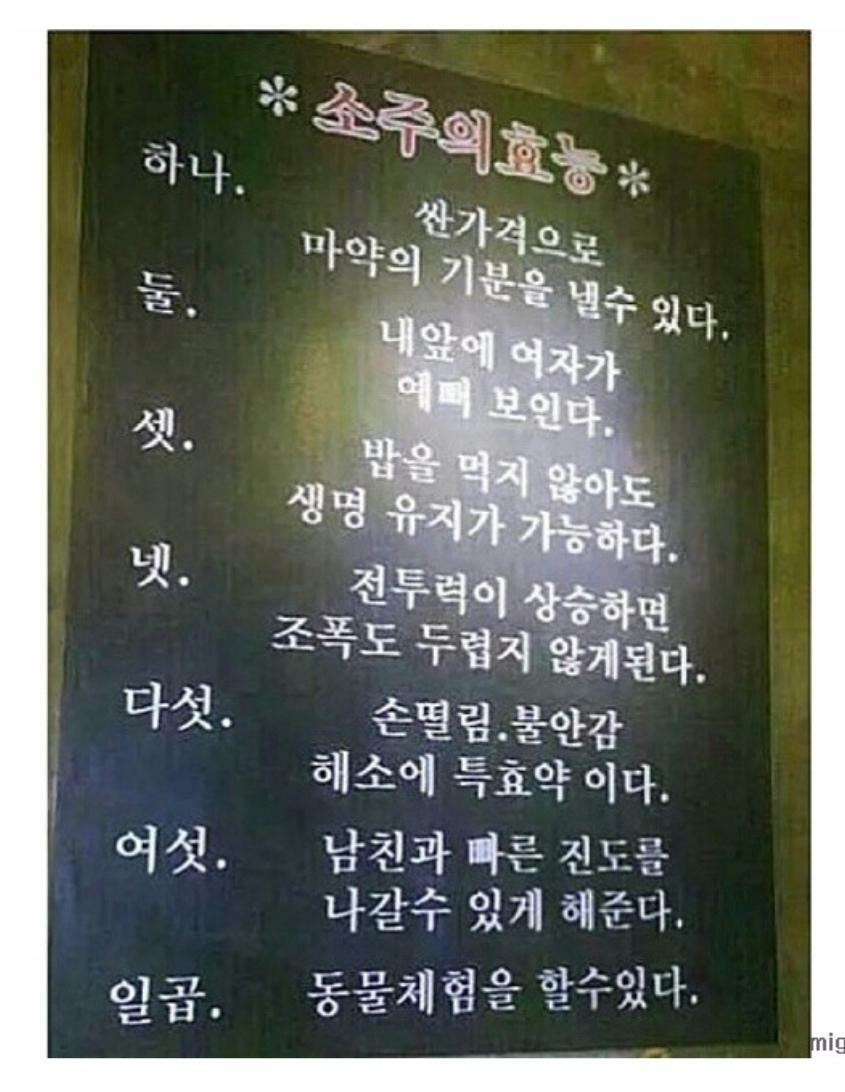 *소주의효능*
하나.
싼가격으로
마약의 기분을 낼수 있다.
둘.
내앞에 여자가
예뻐 보인다.
셋.
밥을 먹지 않아도
생명 유지가 가능하다.
넷.
전투력이 상승하면
조폭도 두렵지 않게된다.
다섯.
손떨림.불안감
해소에 특효약 이다.
여섯.
남친과 빠른 진도를
나갈수 있게 해준다.
일곱.
동물체험을 할수있다.
mig